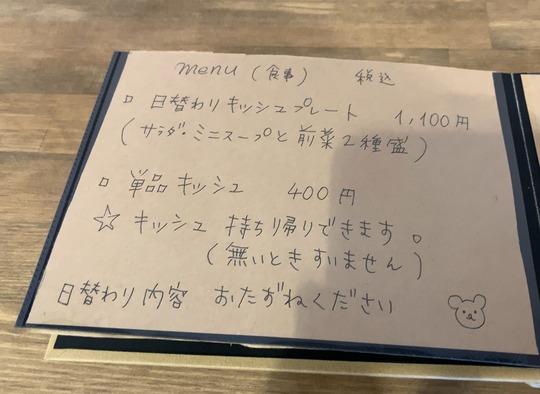 menu (食事) 税込
▫ 日替わりキッシュプレート 1,100円
(サラダ・ミニスープと前菜2種盛)
▫ 単品キッシュ 400円
☆ キッシュ 持ち帰りできます。
(無いときすいません)
日替わり内容 おたずねください